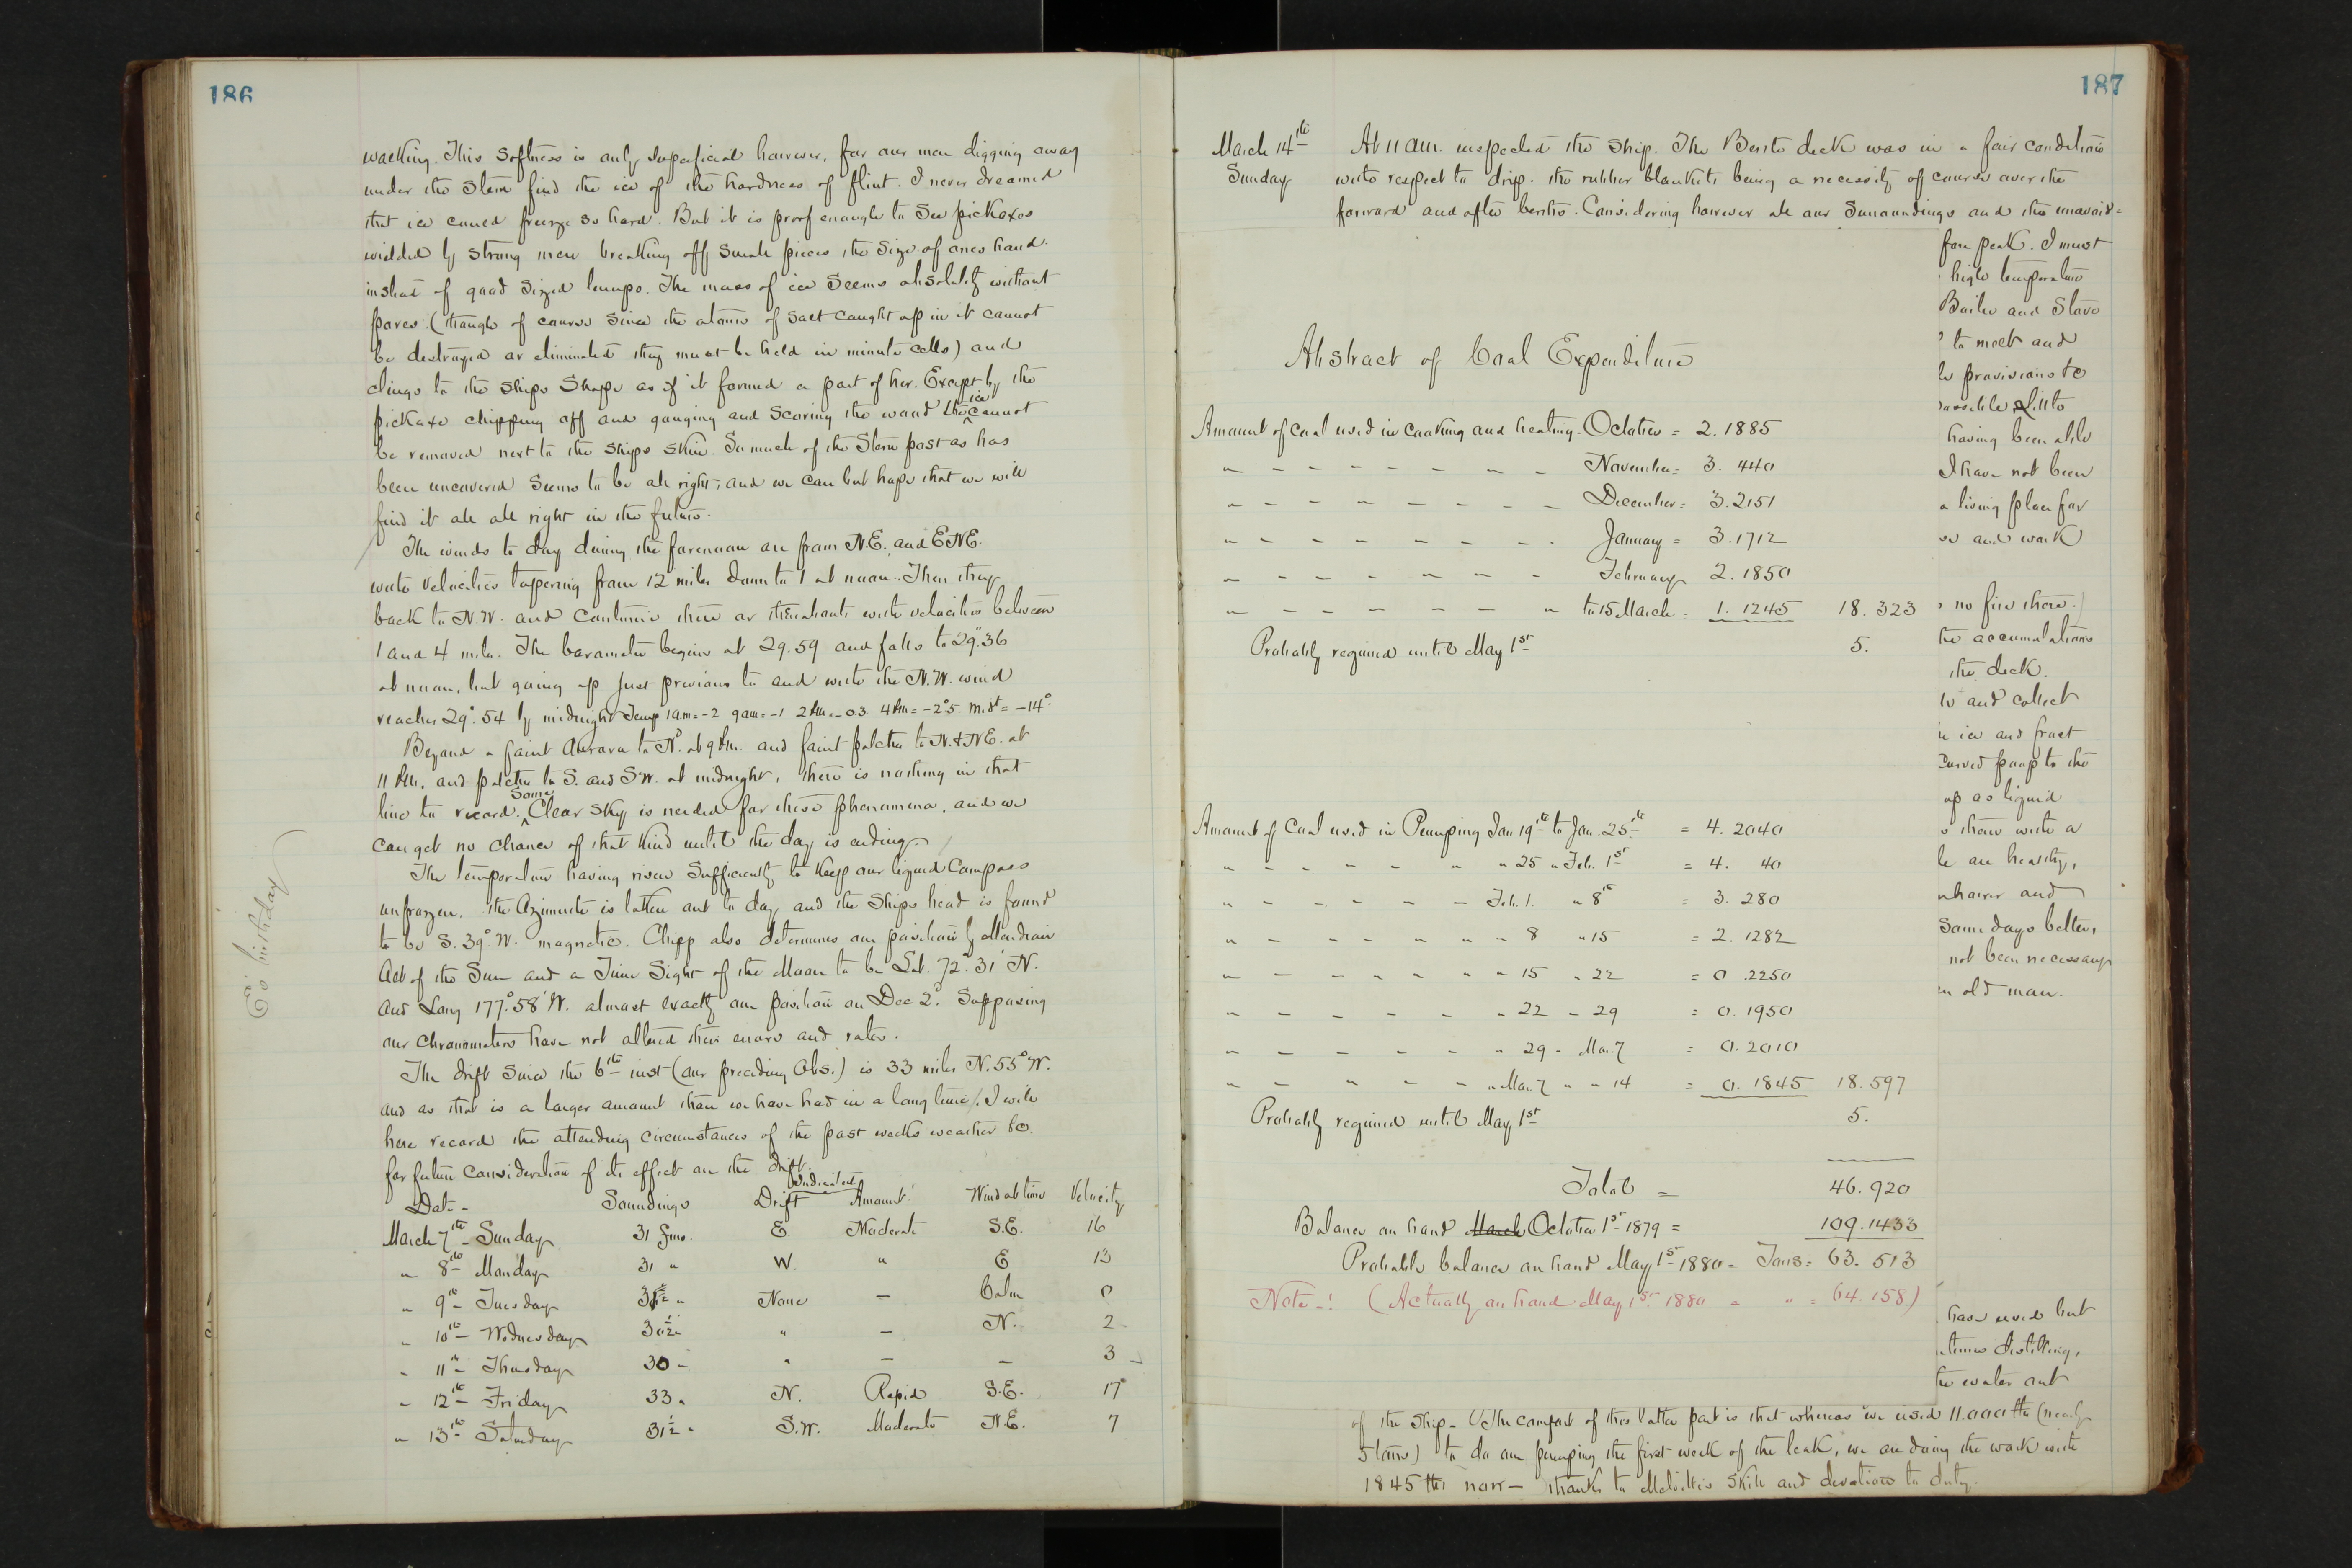 186
walking. This softness is only superficial however, for our men digging away
under the stem find the ice of the hardness of flint. I never dreamed
that ice could freeze so hard. But it is proof enough to see pickaxes
wielded by strong men breaking off small pieces the size of ones hand
instead of good sized lumps. The mass of ice seems absolutely without
pores (though of course since the atoms of salt caught up in it cannot
be destroyed or eliminated they must be held in minute cells) and
clings to the ships shape as if it formed a part of her. Except by the
pickaxe chipping off and gouging and scoring the wood the ice cannot
be removed next to the ships skin. So much of the stem post as has
been uncovered seems to be all right, and we can but hope that we will
find it all all right in the future.
The winds to day during the forenoon are from N.E. and ENE.
with velocities tapering from 12 miles down to 1 at noon. Then they
back to N.W. and continue there or thereabouts with velocities between
1 and 4 miles. The barometer begins at 29.59 and falls to 29".36
at noon, but going up just previous to and with the N.W. wind
reaches 29".54 by midnight. Temp 1am=-2 9am=-1 2PM=-0.3 4PM=-2°5. Midt=-14°
Beyond a faint Aurora to Nd. at 9 PM. and faint patches to N.&NE. at
11 PM, and patches to S. and SW. at midnight, there is nothing in that
line to record. Some Clear sky is needed for these phenomena, and we
can get no chance of that kind until the day is ending.
The temperature having risen sufficiently to keep our liquid Compass
unfrozen, the Azimuth is taken out to day and the ships head is found
to be S. 39° W. magnetic. Chipp also determines our position by Meridian
Alt of the Sun and a Time Sight of the Moon to be Lat. 72° 31' N.
and Long 177° 58' W. almost exactly our position on Dec 2d. Supposing
our chronometers have not altered their errors and rates.
The drift since the 6th inst (our preceding Obs.) is 33 miles N. 55° W.
and as that is a larger amount than we have had in a long time, I will
here record the attending circumstances of the past weeks weather &c.
for future consideration of its effect on the drift.
Date - Soundings Indicated Drift Amount Wind at time Velocity
March 7th - Sunday 31 fms. E. Moderate S.E. 16
" 8th - Monday 31 " W. " E 13
" 9th - Tuesday " None — Calm 0
" 10th - Wednesday 30½ " " — N. 2
" 11th - Thursday 30 - " — — 3
" 12th - Friday 33 " N. Rapid S.E. 17
" 13th - Saturday 31½ " S.W. Moderate N.E. 7
E's birthday
187
March 14th
Sunday
At 11 am. inspected the ship. The Berth deck was in a fair condition
with respect to drip. the rubber blankets being a necessity of course over the
forward and after berths. Considering however all our surroundings and the unavoid=
fore peak. I must
high temperature
Boiler and Stove
to melt and
provisions to
having been able
I have not been
a living place for
and work
no fire there.
the accumulations
the deck.
and collect
ice and frost
curved poop to the
up as liquid
there with a
are healthy,
and
some days better,
not been necessary
old man.
Abstract of Coal Expenditure
Amount of coal used in cooking and heating - October = 2. 1885
" - - - - - - - - November = 3. 440
" - - - - - - - - December = 3. 2151
" - - - - - - - - January = 3. 1712
" - - - - - - - February 2. 1850
" - - - - - - - " to 15 March = 1. 1245 18. 323
Probably required until May 1st 5.
Amount of Coal used in Pumping Jan 19th to Jan. 25th = 4. 2040
" - - - - - " " 25 " Feb. 1st = 4. 40
" - - - - - - Feb. 1. " 8th = 3. 280
" - - - - - " " 8 " 15 = 2. 1282
" - - - - - " " 15 " 22 = 0. 2250
" - - - - - " 22 - 29 = 0. 1950
" - - - - - " 29 - Mar. 7 = 0. 2010
" - - - - - " Mar. 7 " " 14 = 0. 1845 18. 597
Probably required until May 1st 5.
Total = 46. 920
Balance on hand March October 1st 1879 = 109. 1433
Probable balance on hand May 1st 1880 = Tons = 63. 513
Note -! (Actually on hand May 1st 1880 = " = 64. 158)
have used but
distilling,
the water out
of the ship - (The comfort of this latter part is that whereas we used 11.000 lbs (nearly
5 tons) to do our pumping the first week of the leak, we are doing the work with
1845 lbs now - thanks to Melville's skill and devotion to duty.